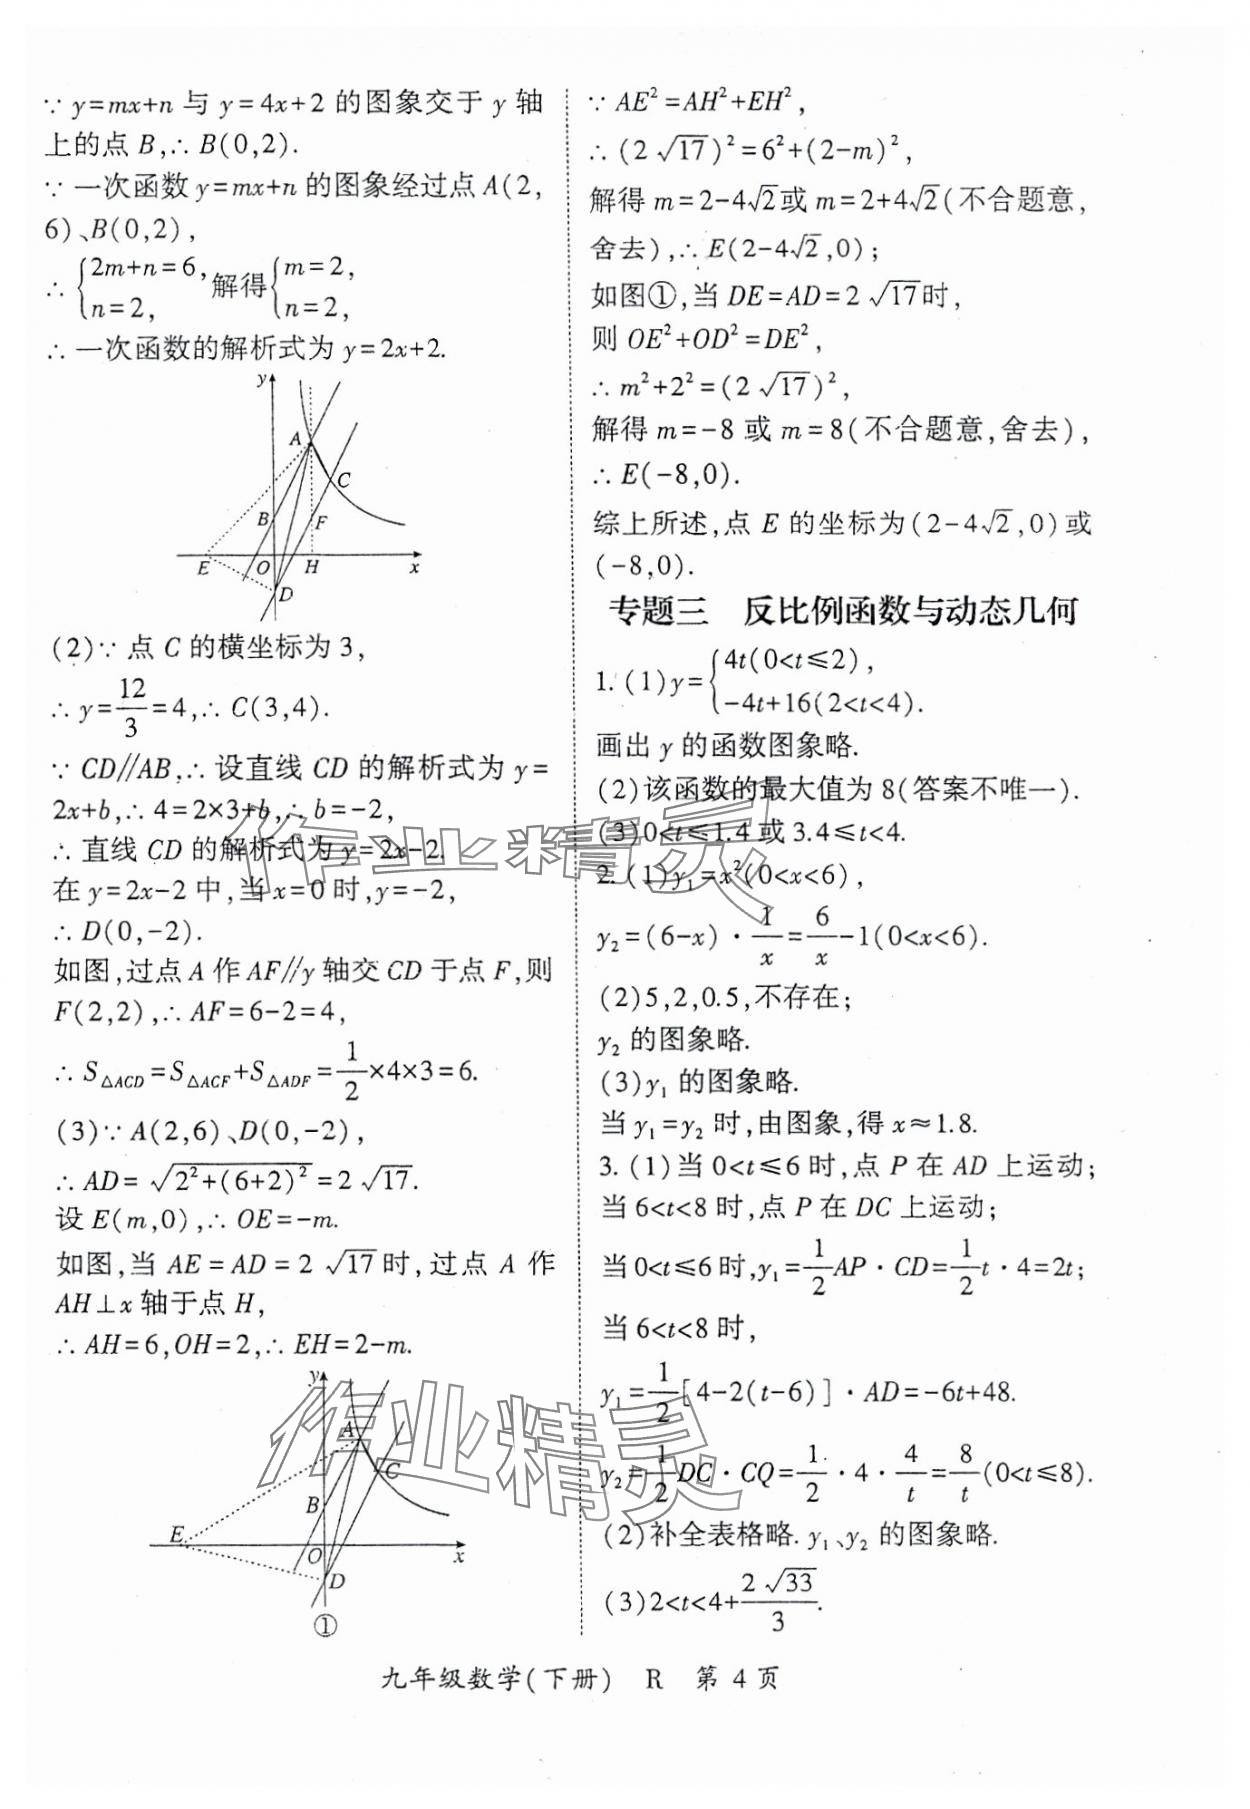 ∵ y=mx+n 与 y=4x+2 的图象交于 y 轴
上的点 B,∴ B(0,2).
∵ 一次函数 y=mx+n 的图象经过点 A(2,
6)、B(0,2),
∴ {2m+n=6, n=2, 解得 {m=2, n=2,
∴ 一次函数的解析式为 y=2x+2.
y
A
C
B
F
E
O
H
x
D
(2)∵ 点 C 的横坐标为 3,
∴ y=12/3=4,∴ C(3,4).
∵ CD∥AB,∴ 设直线 CD 的解析式为 y=
2x+b,∴ 4=2×3+b,∴ b=-2,
∴ 直线 CD 的解析式为 y=2x-2.
在 y=2x-2 中,当 x=0 时,y=-2,
∴ D(0,-2).
如图,过点 A 作 AF∥y 轴交 CD 于点 F,则
F(2,2),∴ AF=6-2=4,
∴ S△ACD=S△ACF+S△ADF=1/2×4×3=6.
(3)∵ A(2,6)、D(0,-2),
∴ AD=√(2²+(6+2)²)=2√17.
设 E(m,0),∴ OE=-m.
如图,当 AE=AD=2√17时,过点 A 作
AH⊥x 轴于点 H,
∴ AH=6,OH=2,∴ EH=2-m.
y
A
C
B
E
O
x
D
①
∵ AE²=AH²+EH²,
∴ (2√17)²=6²+(2-m)²,
解得 m=2-4√2或 m=2+4√2(不合题意,
舍去),∴ E(2-4√2,0);
如图①,当 DE=AD=2√17时,
则 OE²+OD²=DE²,
∴ m²+2²=(2√17)²,
解得 m=-8 或 m=8(不合题意,舍去),
∴ E(-8,0).
综上所述,点 E 的坐标为(2-4√2,0)或
(-8,0).
专题三 反比例函数与动态几何
1. (1)y={4t(0<t≤2), -4t+16(2<t<4).
画出 y 的函数图象略.
(2)该函数的最大值为 8(答案不唯一).
(3)0<t≤1.4 或 3.4≤t<4.
2. (1)y₁=x²(0<x<6),
y₂=(6-x)·1/x=6/x-1(0<x<6).
(2)5,2,0.5,不存在;
y₂ 的图象略.
(3)y₁ 的图象略.
当 y₁=y₂ 时,由图象,得 x≈1.8.
3. (1)当 0<t≤6 时,点 P 在 AD 上运动;
当 6<t<8 时,点 P 在 DC 上运动;
当 0<t≤6 时,y₁=1/2AP·CD=1/2t·4=2t;
当 6<t<8 时,
y₁=1/2[4-2(t-6)]·AD=-6t+48.
y₂=1/2DC·CQ=1/2·4·4/t=8/t(0<t≤8).
(2)补全表格略. y₁、y₂ 的图象略.
(3)2<t<4+2√33/3.
作业精灵
作业精灵
九年级数学(下册) R 第 4 页